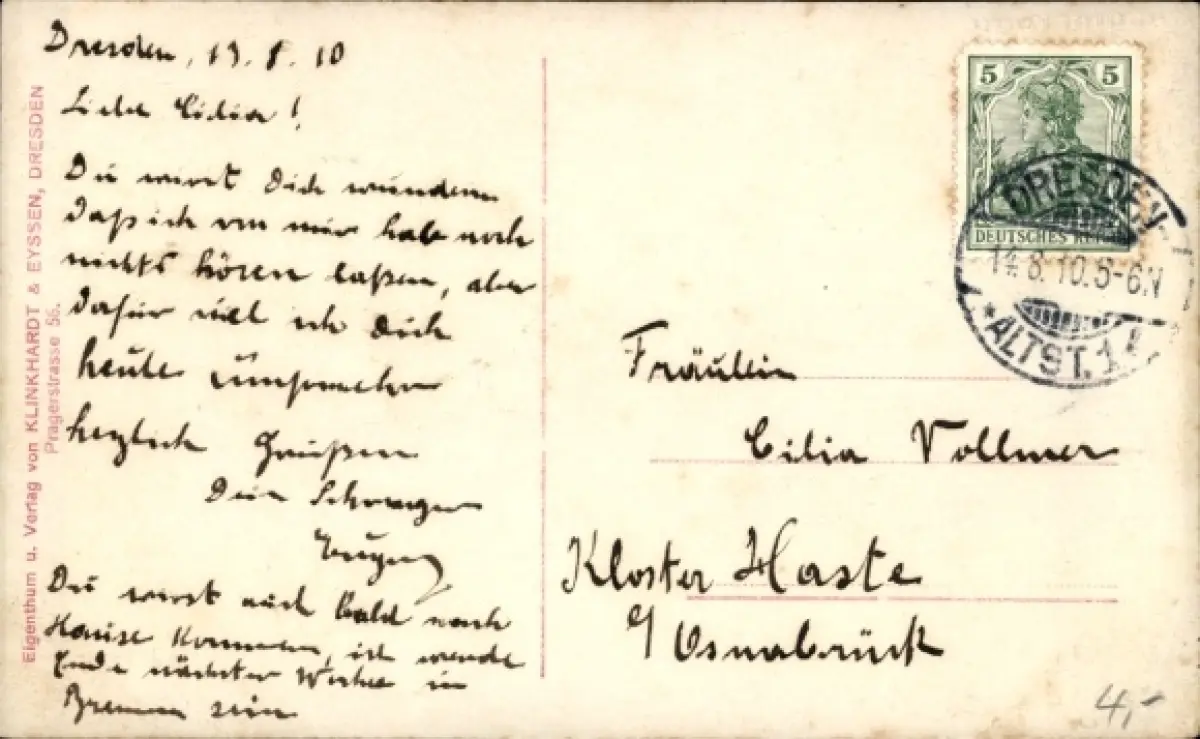 Dresden, 13. 8. 10
Liebe Cilia!
Du wirst Dich wundern
daß ich von mir hab noch
nichts hören laßen, aber
dafür will ich Dich
heute umsomehr
herzlich Grüßen
Dein Schwager
Eugen
Du wirst auch bald nach
Hause kommen, ich werde
Ende nächster Woche in
Bremen sein
Eigenthum u. Verlag von KLINKHARDT & EYSSEN, DRESDEN
Pragerstrasse 56.
5 5
DEUTSCHES REICH
DRESDEN-
14.8.10.5-6.N
*ALTST.1
Fräulein
Cilia Vollmer
Kloster Haste
b/ Osnabrück
4,-